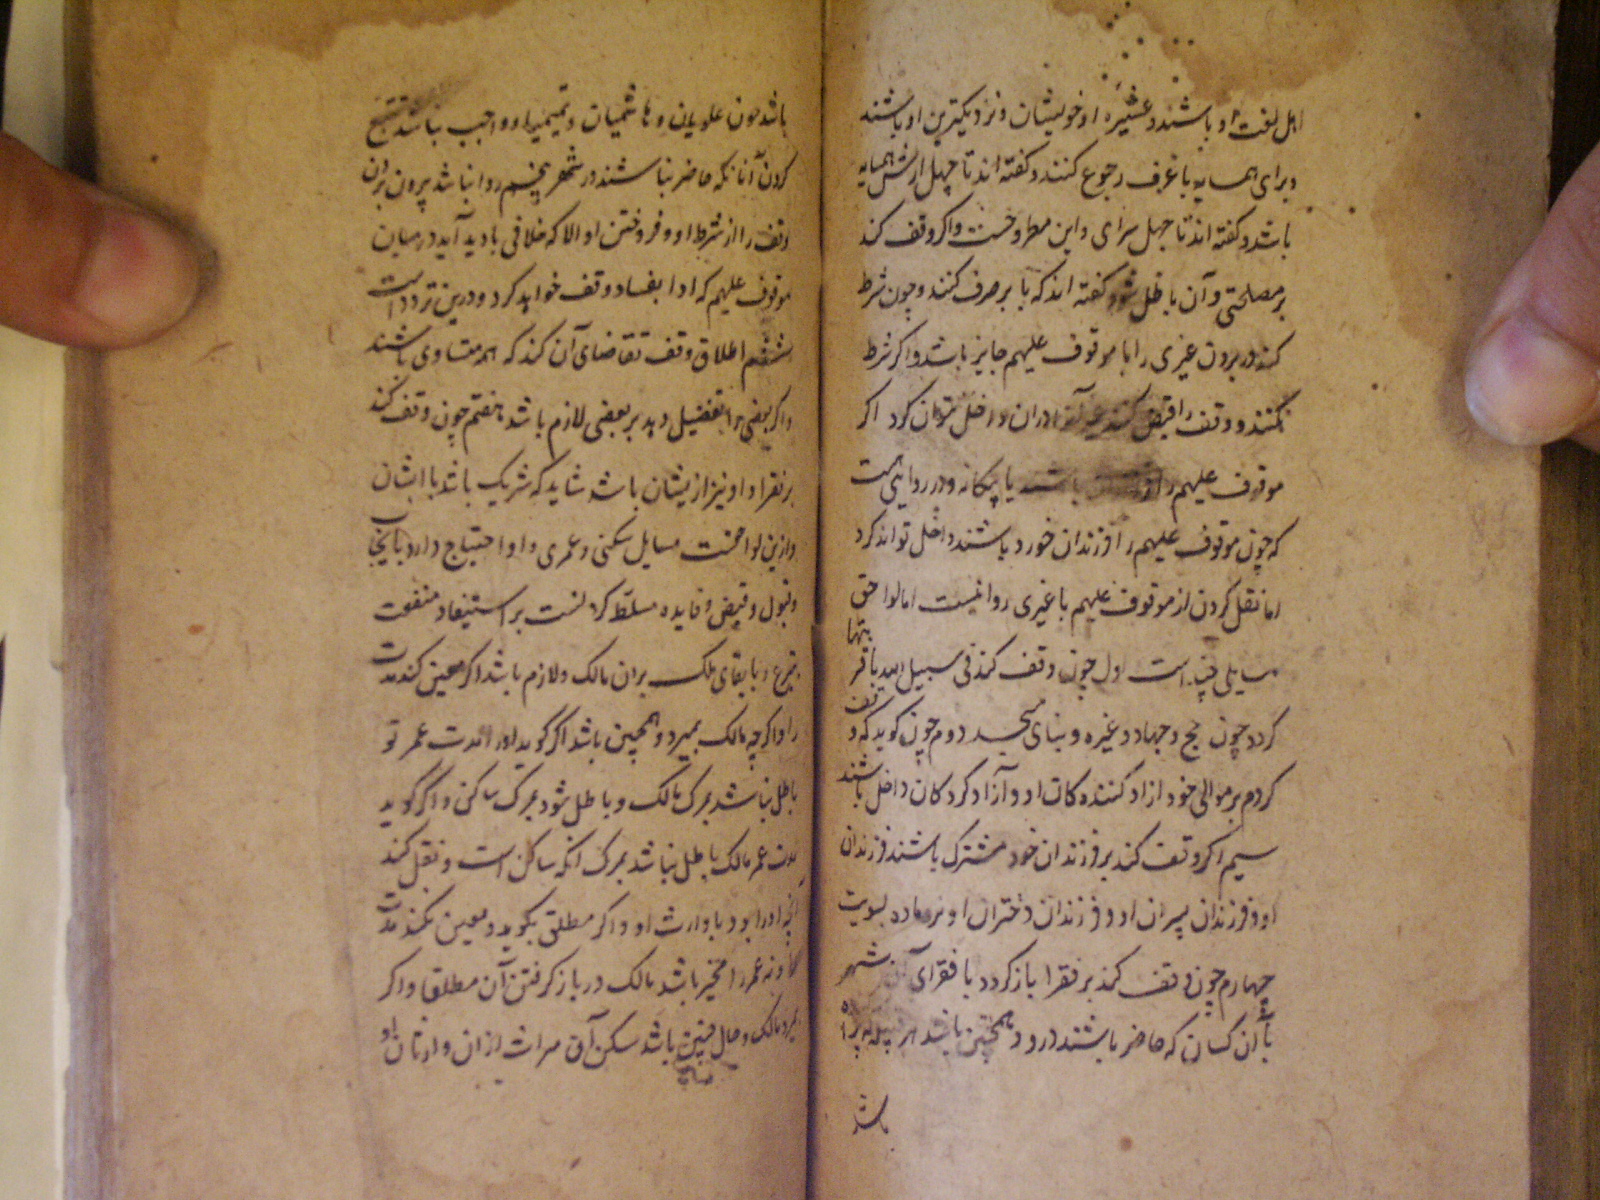 اهل لغت او باشند و عشیره او خویشان و نزدیکترین او باشند
و برای همسایه با عرف رجوع کنند و کفته اند تا چهل ارش همسایه
باشد و کفته اند تا چهل سرای و این مطروحست و اکر وقف کند
بر مصلحتی و آن باطل شود کفته اند که با بر صرف کنند و چون شرط
کند در بردن غیری را با موقوف علیهم جایز باشد و اکر شرط
نکند و وقف را قبض کند غیر آنرا دران داخل نتوان کرد اکر
موقوف علیهم باشند یا بیکانه و در روایتی هست
که چون موقوف علیهم را فرزندان خورد باشند داخل تواند کرد
اما نقل کردن از موقوف علیهم با غیری روا نیست اما لواحق
مسایلی چند است اول چون وقف کند فی سبیل الله با قربتها
کردد چون حج و جهاد و غیره و بنای مسجد دوم چون کوید که وقف
کردم بر موالی خود ازاد کننده کان او و آزاد کرد کان داخل باشند
سیم اکر وقف کند بر فرزندان خود مشترک باشند فرزندان
او و فرزندان پسران او و فرزندان دختران او نر و ماده بسویت
چهارم چون وقف کند بر فقرا باز کردد با فقرای آن شهر
با آن کسان که حاضر باشند درو و همچنین باشد هر قبیله پر
باشد
باشد چون علویان و هاشمیان و تمیمیان و واجب نباشد تتبع
کردن آنانکه حاضر نباشند در شهر پنجم روا نباشد بیرون بردن
وقف را از شرط او و فروختن او الا که خلافی بادید آید در میان
موقوف علیهم که ادا بفساد وقف خواهد کرد و درین تردد است
ششم اطلاق وقف تقاضای آن کند که همه متساوی باشند
و اکر بعضی را تفضیل دهد بر بعضی لازم باشد هفتم چون وقف کند
بر فقرا و او نیز ازیشان باشد شاید که شریک باشد با ایشان
و ازین لواحقست مسایل سکنی و عمری و او احتیاج دارد بایجاب
و قبول و قبض و فایده مسلط کردنست بر استیفاد منفعت
تبرع و با بقای ملک بران مالک و لازم باشد اکر معین کند مدت
را و اکر چه مالک بمیرد و همچنین باشد اکر کوید او را مدت عمر تو
باطل نباشد بمرک مالک و باطل شود بمرک ساکن و اکر کوید
مدت عمر مالک باطل نباشد بمرک آنکه ساکن است و نقل کند
آنچه او را بود با وارث او و اکر مطلق بکوید و معین نکند مدت
و نه عمر را مخیر باشد مالک در باز کرفتن آن مطلقا و اکر
بمیرد مالک و حال چنین باشد سکن آن میراث ازان وارثان او